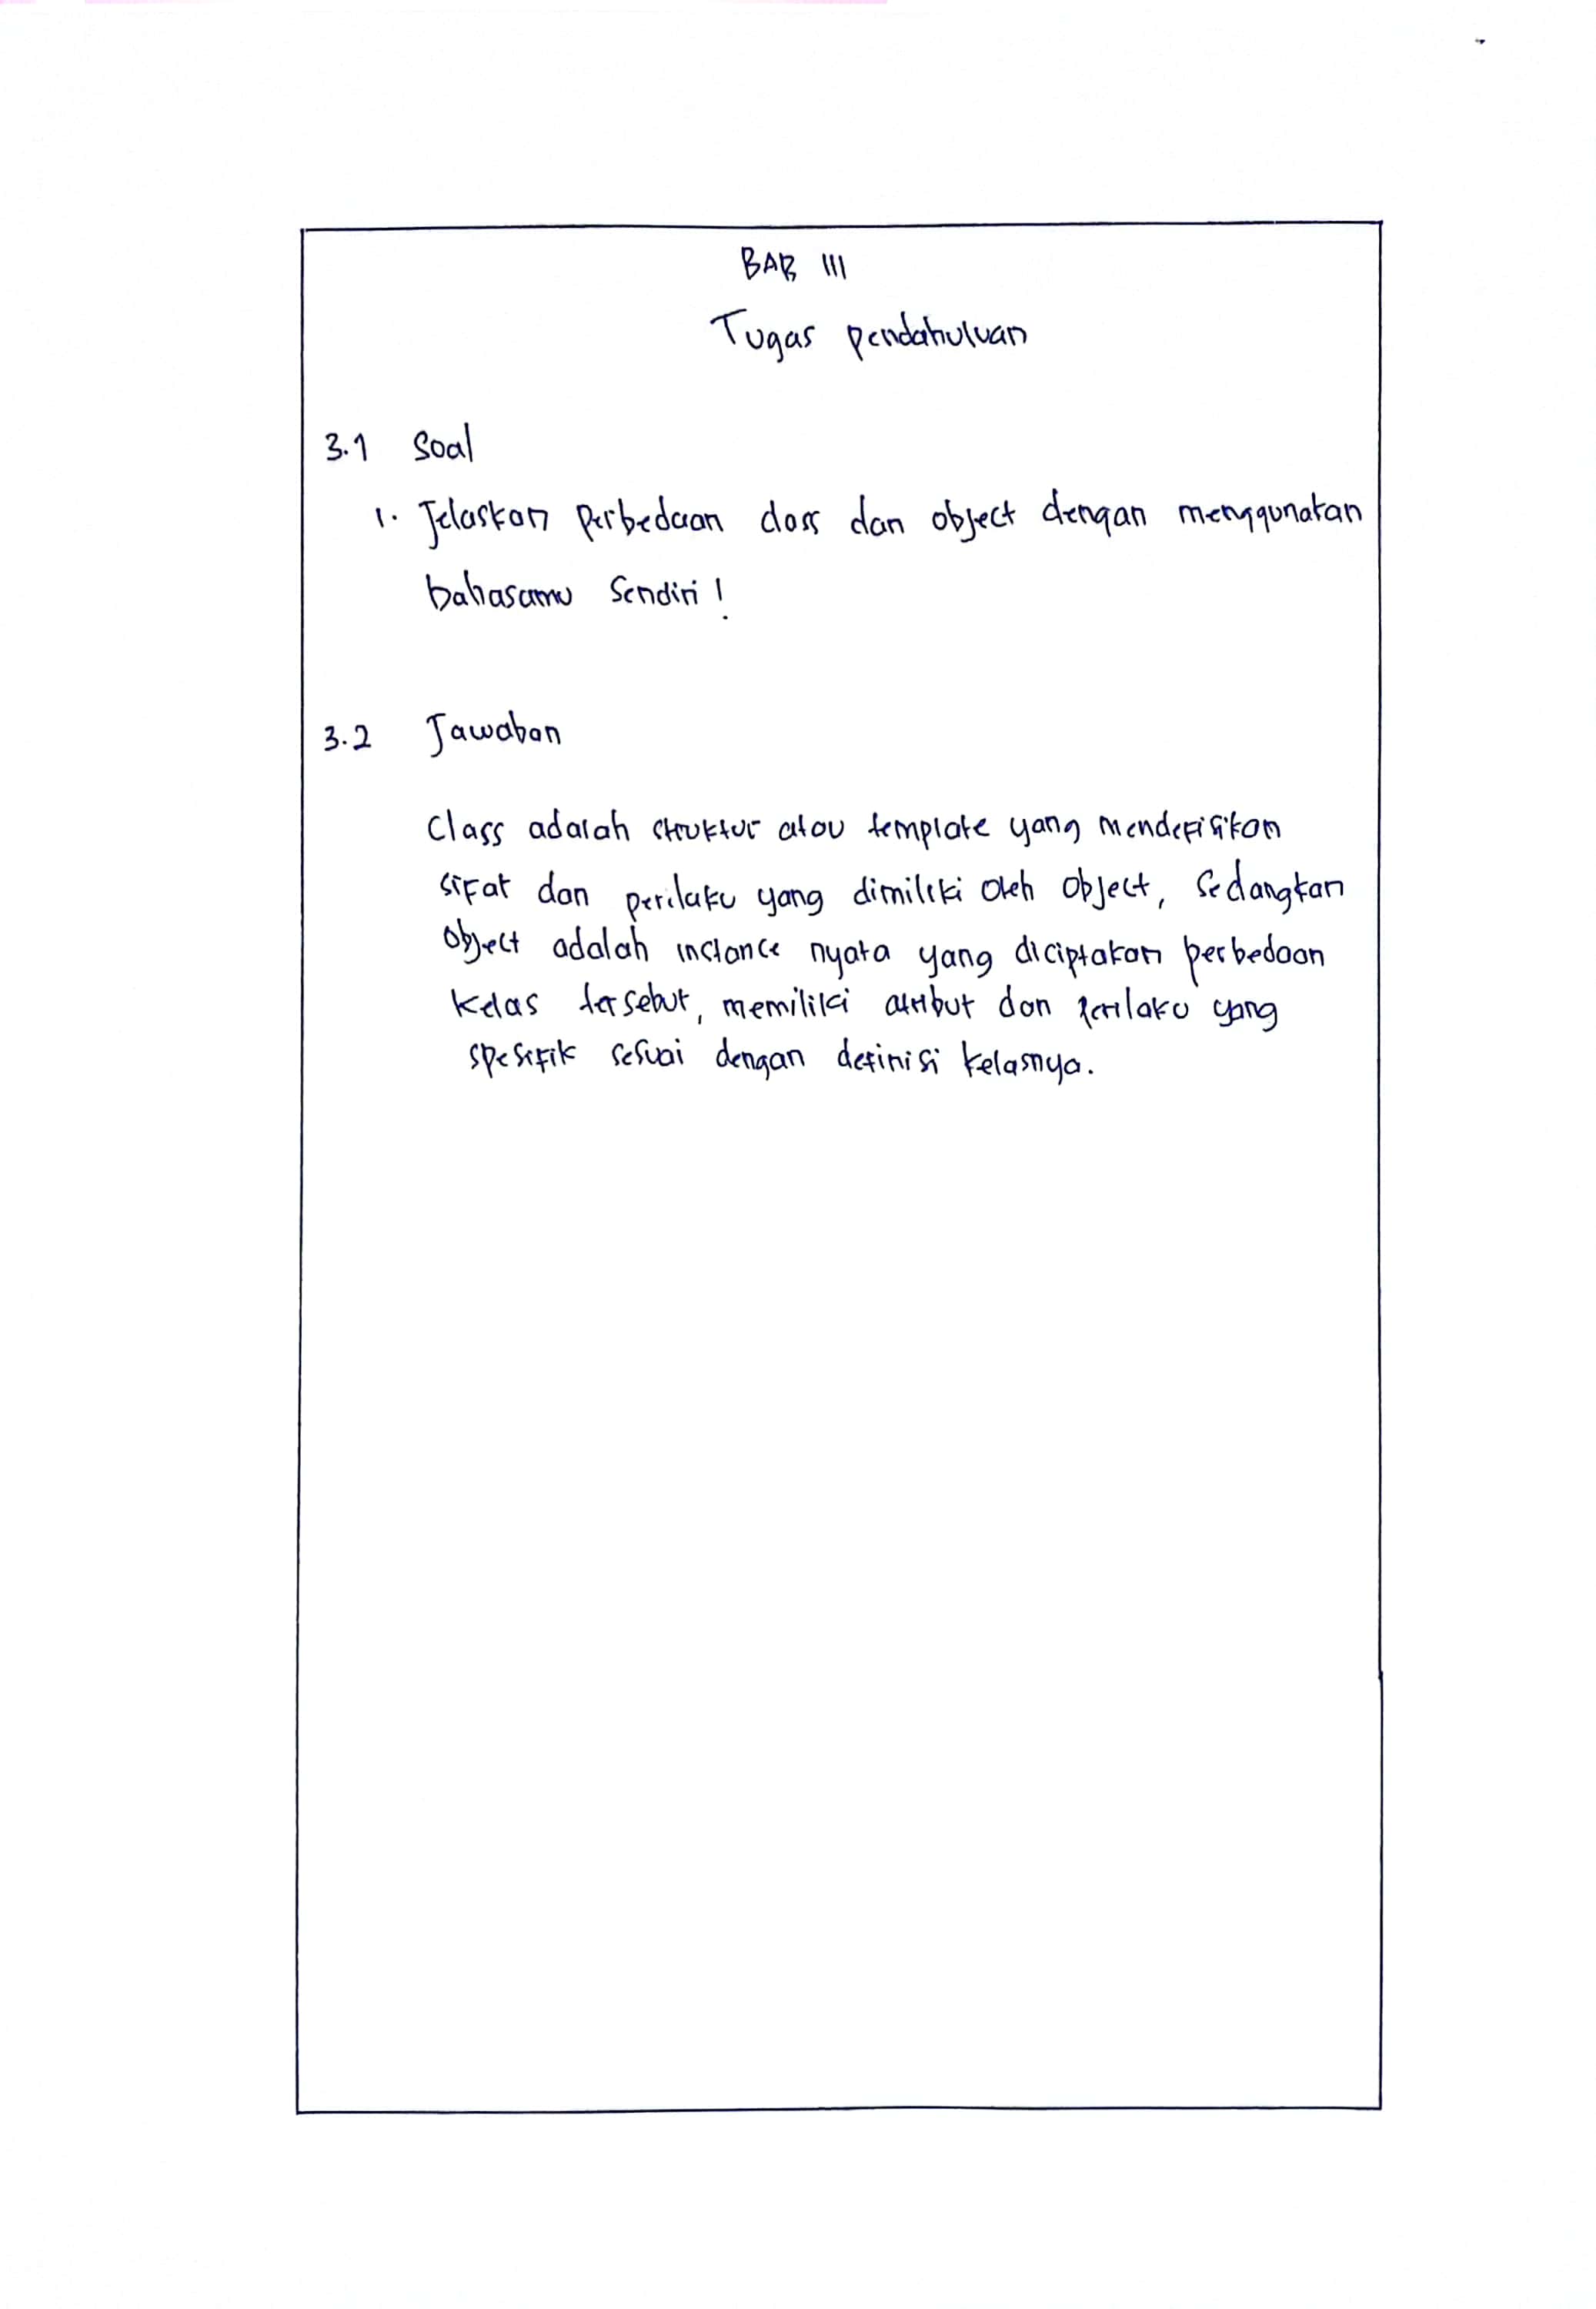 BAB III
Tugas pendahuluan
3.1 Soal
1. Jelaskan perbedaan class dan object dengan menggunakan
bahasamu sendiri !
3.2 Jawaban
Class adalah struktur atau template yang mendefisikan
sifat dan perilaku yang dimiliki oleh object, sedangkan
object adalah instance nyata yang diciptakan perbedaan
kelas tersebut, memiliki atribut dan perilaku yang
spesifik sesuai dengan definisi kelasnya.